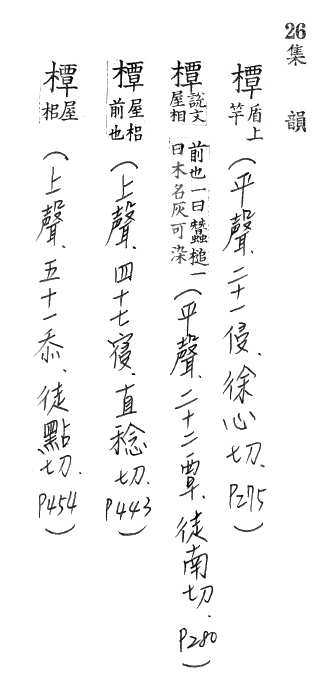 26集韻
橝盾上竿(平聲.二十一侵.徐心切.P275)
橝說文屋梠前也一曰蠶槌一曰木名灰可染(平聲.二十二覃.徒南切.P280)
橝屋梠前也(上聲.四十七寑.直稔切.P443)
橝屋梠(上聲.五十一忝.徒點切.P454)